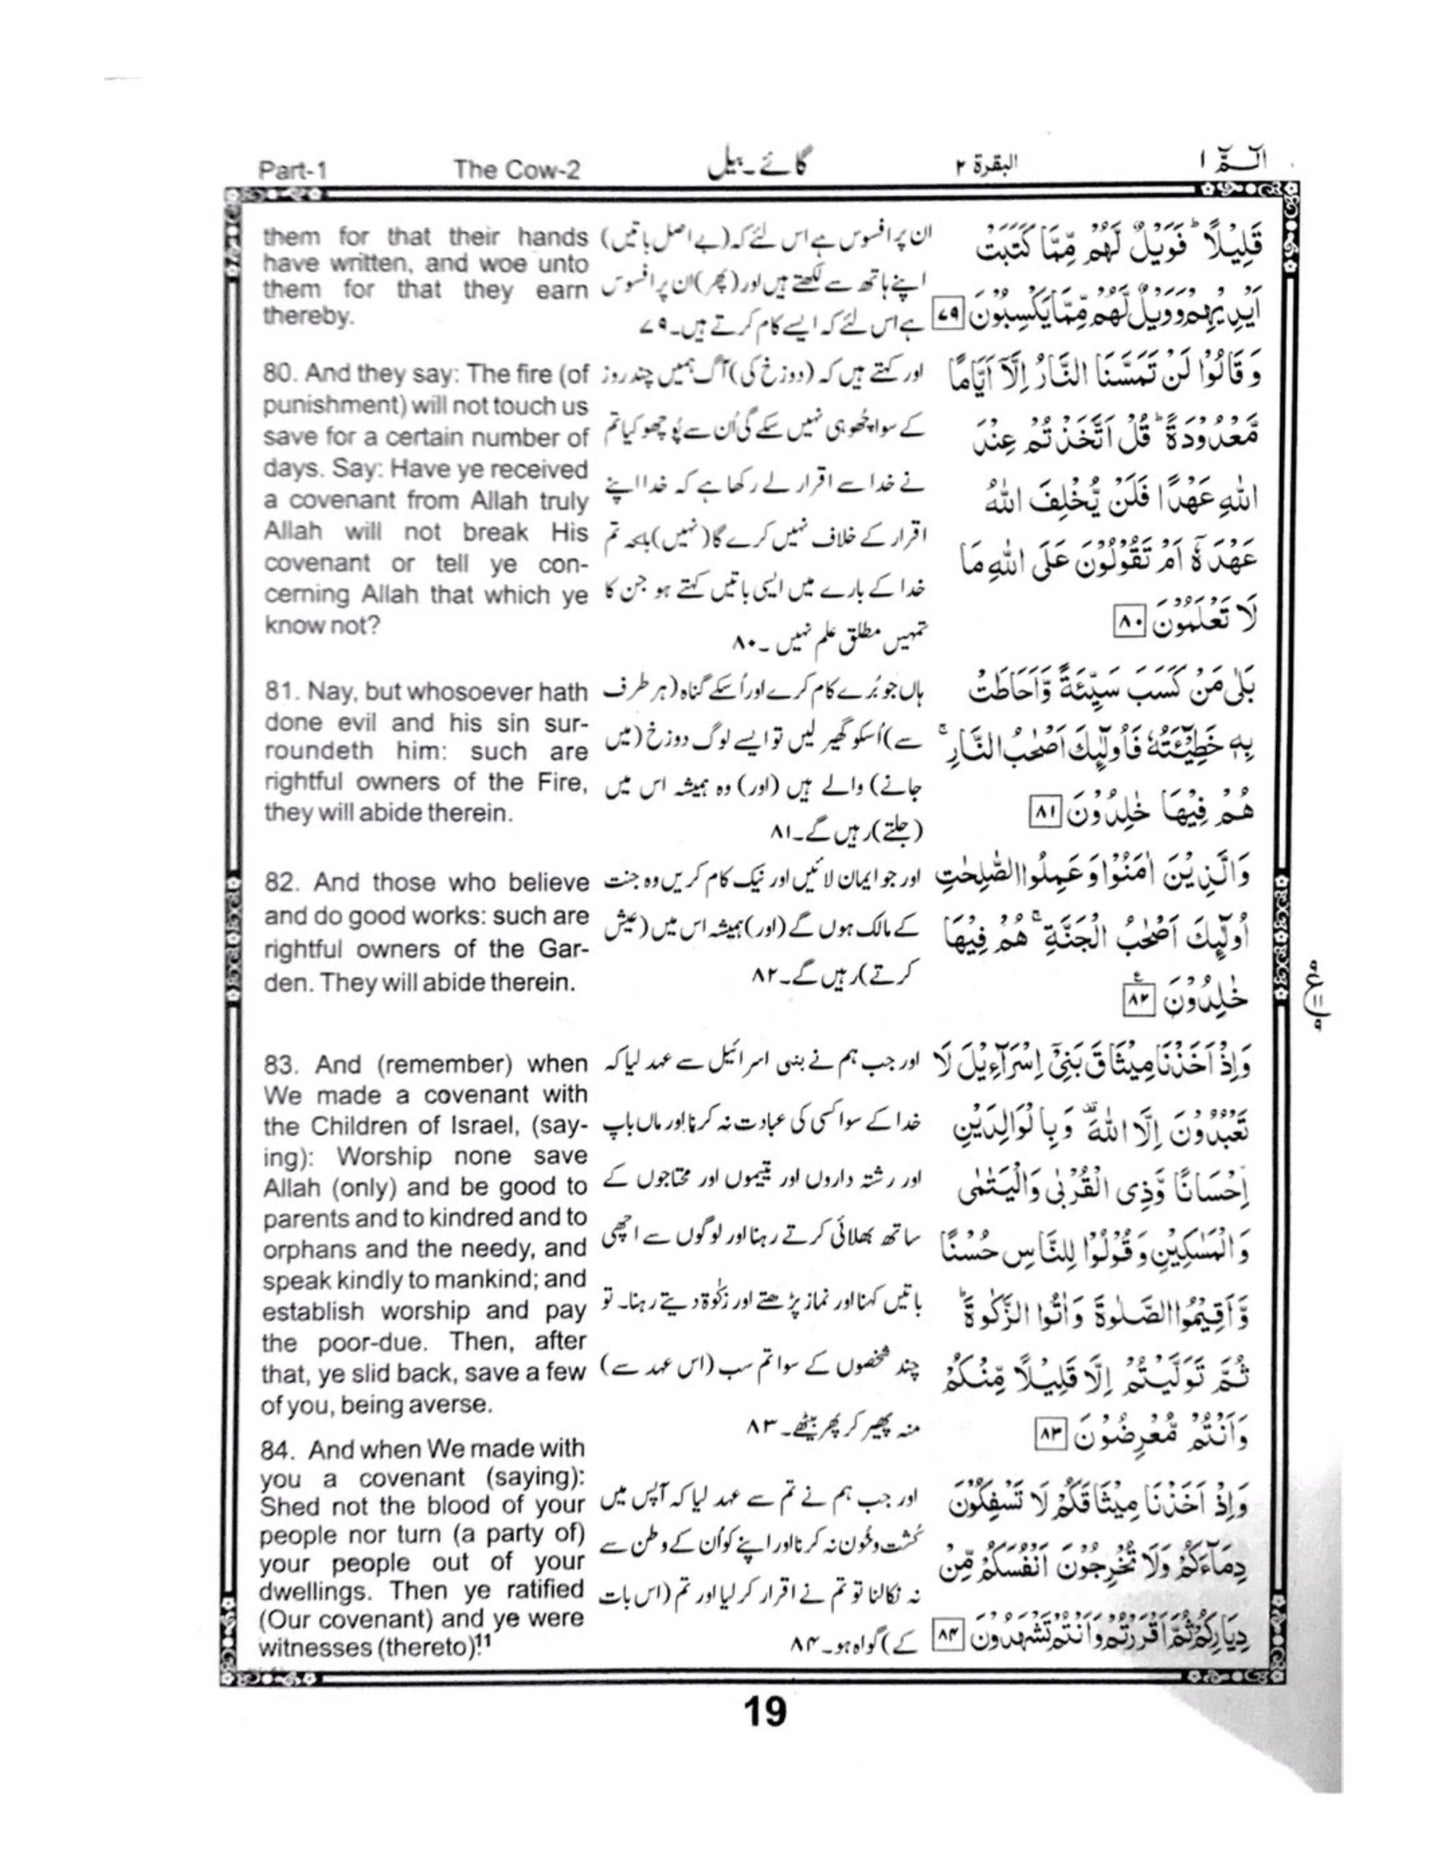 Part-1
The Cow-2
گائے۔بیل
البقرة ٢
الٓمّٓ ١
them for that their hands
have written, and woe unto
them for that they earn
thereby.
80. And they say: The fire (of
punishment) will not touch us
save for a certain number of
days. Say: Have ye received
a covenant from Allah truly
Allah will not break His
covenant or tell ye con-
cerning Allah that which ye
know not?
81. Nay, but whosoever hath
done evil and his sin sur-
roundeth him: such are
rightful owners of the Fire,
they will abide therein.
82. And those who believe
and do good works: such are
rightful owners of the Gar-
den. They will abide therein.
83. And (remember) when
We made a covenant with
the Children of Israel, (say-
ing): Worship none save
Allah (only) and be good to
parents and to kindred and to
orphans and the needy, and
speak kindly to mankind; and
establish worship and pay
the poor-due. Then, after
that, ye slid back, save a few
of you, being averse.
84. And when We made with
you a covenant (saying):
Shed not the blood of your
people nor turn (a party of)
your people out of your
dwellings. Then ye ratified
(Our covenant) and ye were
witnesses (thereto)!11
ان پر افسوس ہے اس لئے کہ (بے اصل باتیں)
اپنے ہاتھ سے لکھتے ہیں اور (پھر) ان پر افسوس
ہے اس لئے کہ ایسے کام کرتے ہیں۔۷۹
اور کہتے ہیں کہ (دوزخ کی) آگ ہمیں چند روز
کے سوا چُھو ہی نہیں سکے گی اُن سے پُوچھو کیا تم
نے خدا سے اقرار لے رکھا ہے کہ خدا اپنے
اقرار کے خلاف نہیں کرے گا (نہیں) بلکہ تم
خدا کے بارے میں ایسی باتیں کہتے ہو جن کا
تمہیں مطلق علم نہیں ۔۸۰
ہاں جو بُرے کام کرے اور اُسکے گناہ (ہر طرف
سے) اُسکو گھیر لیں تو ایسے لوگ دوزخ (میں
جانے) والے ہیں (اور) وہ ہمیشہ اس میں
(جلتے) رہیں گے۔۸۱
اور جو ایمان لائیں اور نیک کام کریں وہ جنت
کے مالک ہوں گے (اور) ہمیشہ اس میں (عیش
کرتے) رہیں گے۔۸۲
اور جب ہم نے بنی اسرائیل سے عہد لیا کہ
خدا کے سوا کسی کی عبادت نہ کرنا اور ماں باپ
اور رشتہ داروں اور یتیموں اور محتاجوں کے
ساتھ بھلائی کرتے رہنا اور لوگوں سے اچھی
باتیں کہنا اور نماز پڑھتے اور زکوٰة دیتے رہنا۔ تو
چند شخصوں کے سوا تم سب (اس عہد سے)
منہ پھیر کر پھر بیٹھے۔۸۳
اور جب ہم نے تم سے عہد لیا کہ آپس میں
کُشت و خُون نہ کرنا اور اپنے کو اُن کے وطن سے
نہ نکالنا تو تم نے اقرار کر لیا اور تم (اس بات
کے) گواہ ہو۔۸۴
قَلِيْلًا ؕ فَوَيْلٌ لَّهُمْ مِّمَّا كَتَبَتْ
اَيْدِيْهِمْ وَوَيْلٌ لَّهُمْ مِّمَّا يَكْسِبُوْنَ ٧٩
وَ قَالُوْا لَنْ تَمَسَّنَا النَّارُ اِلَّاۤ اَيَّامًا
مَّعْدُوْدَةً ؕ قُلْ اَتَّخَذْتُمْ عِنْدَ
اللّٰهِ عَهْدًا فَلَنْ يُّخْلِفَ اللّٰهُ
عَهْدَهٗۤ اَمْ تَقُوْلُوْنَ عَلَى اللّٰهِ مَا
لَا تَعْلَمُوْنَ ٨٠
بَلٰى مَنْ كَسَبَ سَيِّئَةً وَّاَحَاطَتْ
بِهٖ خَطِيْٓئَتُهٗ فَاُولٰٓئِكَ اَصْحٰبُ النَّارِ ۚ
هُمْ فِيْهَا خٰلِدُوْنَ ٨١
وَالَّذِيْنَ اٰمَنُوْا وَعَمِلُوا الصّٰلِحٰتِ
اُولٰٓئِكَ اَصْحٰبُ الْجَنَّةِ ۚ هُمْ فِيْهَا
خٰلِدُوْنَ ٨٢ ع
وَاِذْ اَخَذْنَا مِيْثَاقَ بَنِيْۤ اِسْرَآءِيْلَ لَا
تَعْبُدُوْنَ اِلَّا اللّٰهَ ۟ وَبِالْوَالِدَيْنِ
اِحْسَانًا وَّذِي الْقُرْبٰى وَالْيَتٰمٰى
وَالْمَسٰكِيْنِ وَقُوْلُوْا لِلنَّاسِ حُسْنًا
وَّاَقِيْمُوا الصَّلٰوةَ وَاٰتُوا الزَّكٰوةَ ؕ
ثُمَّ تَوَلَّيْتُمْ اِلَّا قَلِيْلًا مِّنْكُمْ
وَاَنْتُمْ مُّعْرِضُوْنَ ٨٣
وَاِذْ اَخَذْنَا مِيْثَاقَكُمْ لَا تَسْفِكُوْنَ
دِمَآءَكُمْ وَلَا تُخْرِجُوْنَ اَنْفُسَكُمْ مِّنْ
دِيَارِكُمْ ثُمَّ اَقْرَرْتُمْ وَاَنْتُمْ تَشْهَدُوْنَ ٨٤
19